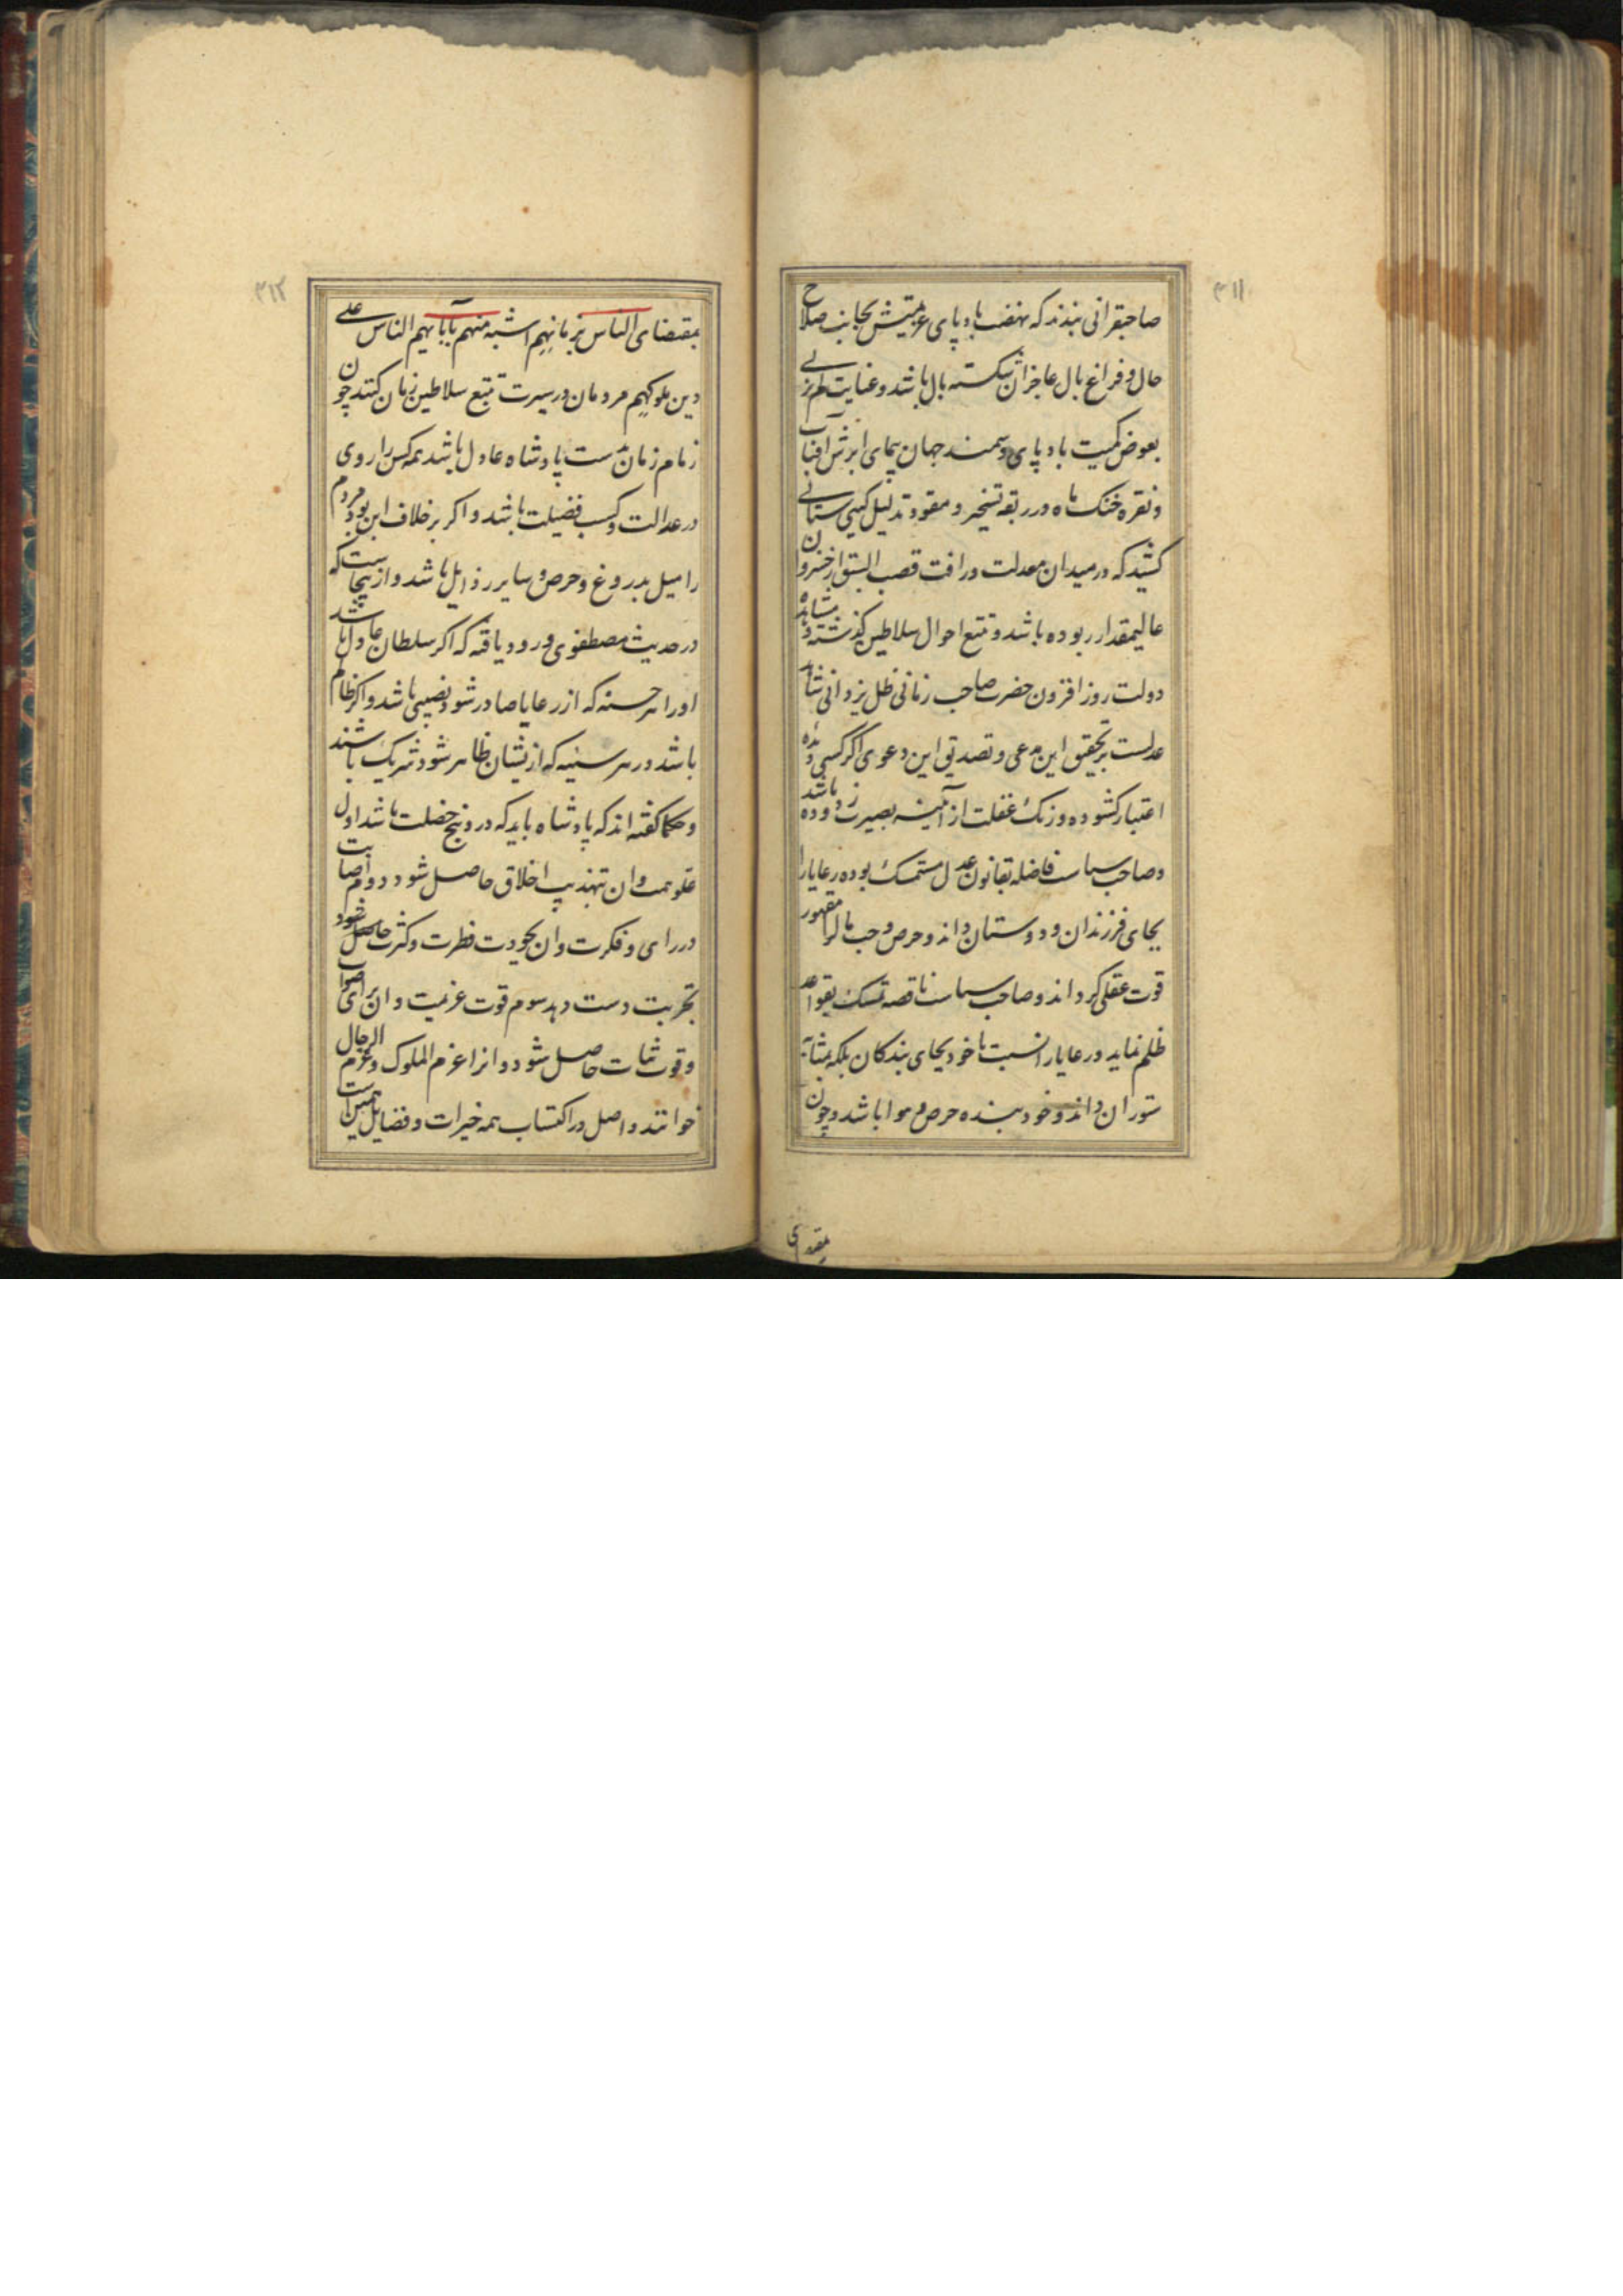 ۳۱۱
صاحبقرانی بندند که نهضت باد پای عزیمتش بجانب صلاح
حال و فراغ بال عاجزان شکسته بال باشد و عنایت لم یزلی
بعوض کمیت باد پای و سمند جهان پیمای ابرش افتاب
و نقره خنک ماه در ربقه تسخیر و مقود تذلیل کیتی ستانی
کشید که در میدان معدلت و رافت قصب السبق از خسروان
عالیمقدار ربوده باشد و تتبع احوال سلاطین کذشته و مشاهده
دولت روز افزون حضرت صاحب زمانی ظل یزدانی شاهد
عدلست بر تحقیق این مدعی و تصدیق این دعوی اکر کسی دیده
اعتبار کشوده و زنک غفلت از آینه بصیرت زدوده باشد
و صاحب سیاست فاضله بقانون عدل متمسک بوده رعایا را
بجای فرزندان و دوستان داند و حرص و حب مال را مقهور
قوت عقلی کرداند و صاحب سیاست ناقصه تمسک بقواعد
ظلم نماید و رعایا را نسبت با خود بجای بندکان بلکه بمثابه
ستوران داند و خود بنده حرص و هوا باشد و چون
بمقتضای
۳۱۲
بمقتضای الناس بزمانهم اشبه منهم بآبایهم الناس علی
دین ملوکهم مردمان در سیرت تتبع سلاطین زمان کنند چون
زمام زمان بدست پادشاه عادل باشد همه کس را روی
در عدالت و کسب فضیلت باشد و اکر بر خلاف این بود مردم
را میل بدروغ و حرص و سایر رذایل باشد و از ینجاست که
در حدیث مصطفوی ورود یافته که اکر سلطان عادل باشد
او را از هر حسنه که از رعایا صادر شود نصیبی باشد و اکر ظالم
باشد در هر سیئه که از یشان ظاهر شود شریک باشند
و حکما کفته اند که پادشاه باید که در و پنج خصلت باشد اول
علو همت و ان تهذیب اخلاق حاصل شود دوم اصابت
در رای و فکرت و ان بجودت فطرت و کثرت حاصل شود
تجربت دست دهد سوم قوت عزیمت و ان برای صواب
و قوت ثبات حاصل شود و انرا عزم الملوک و عزم الرجال
خوانند و اصل در اکتساب همه خیرات و فضایل همین است